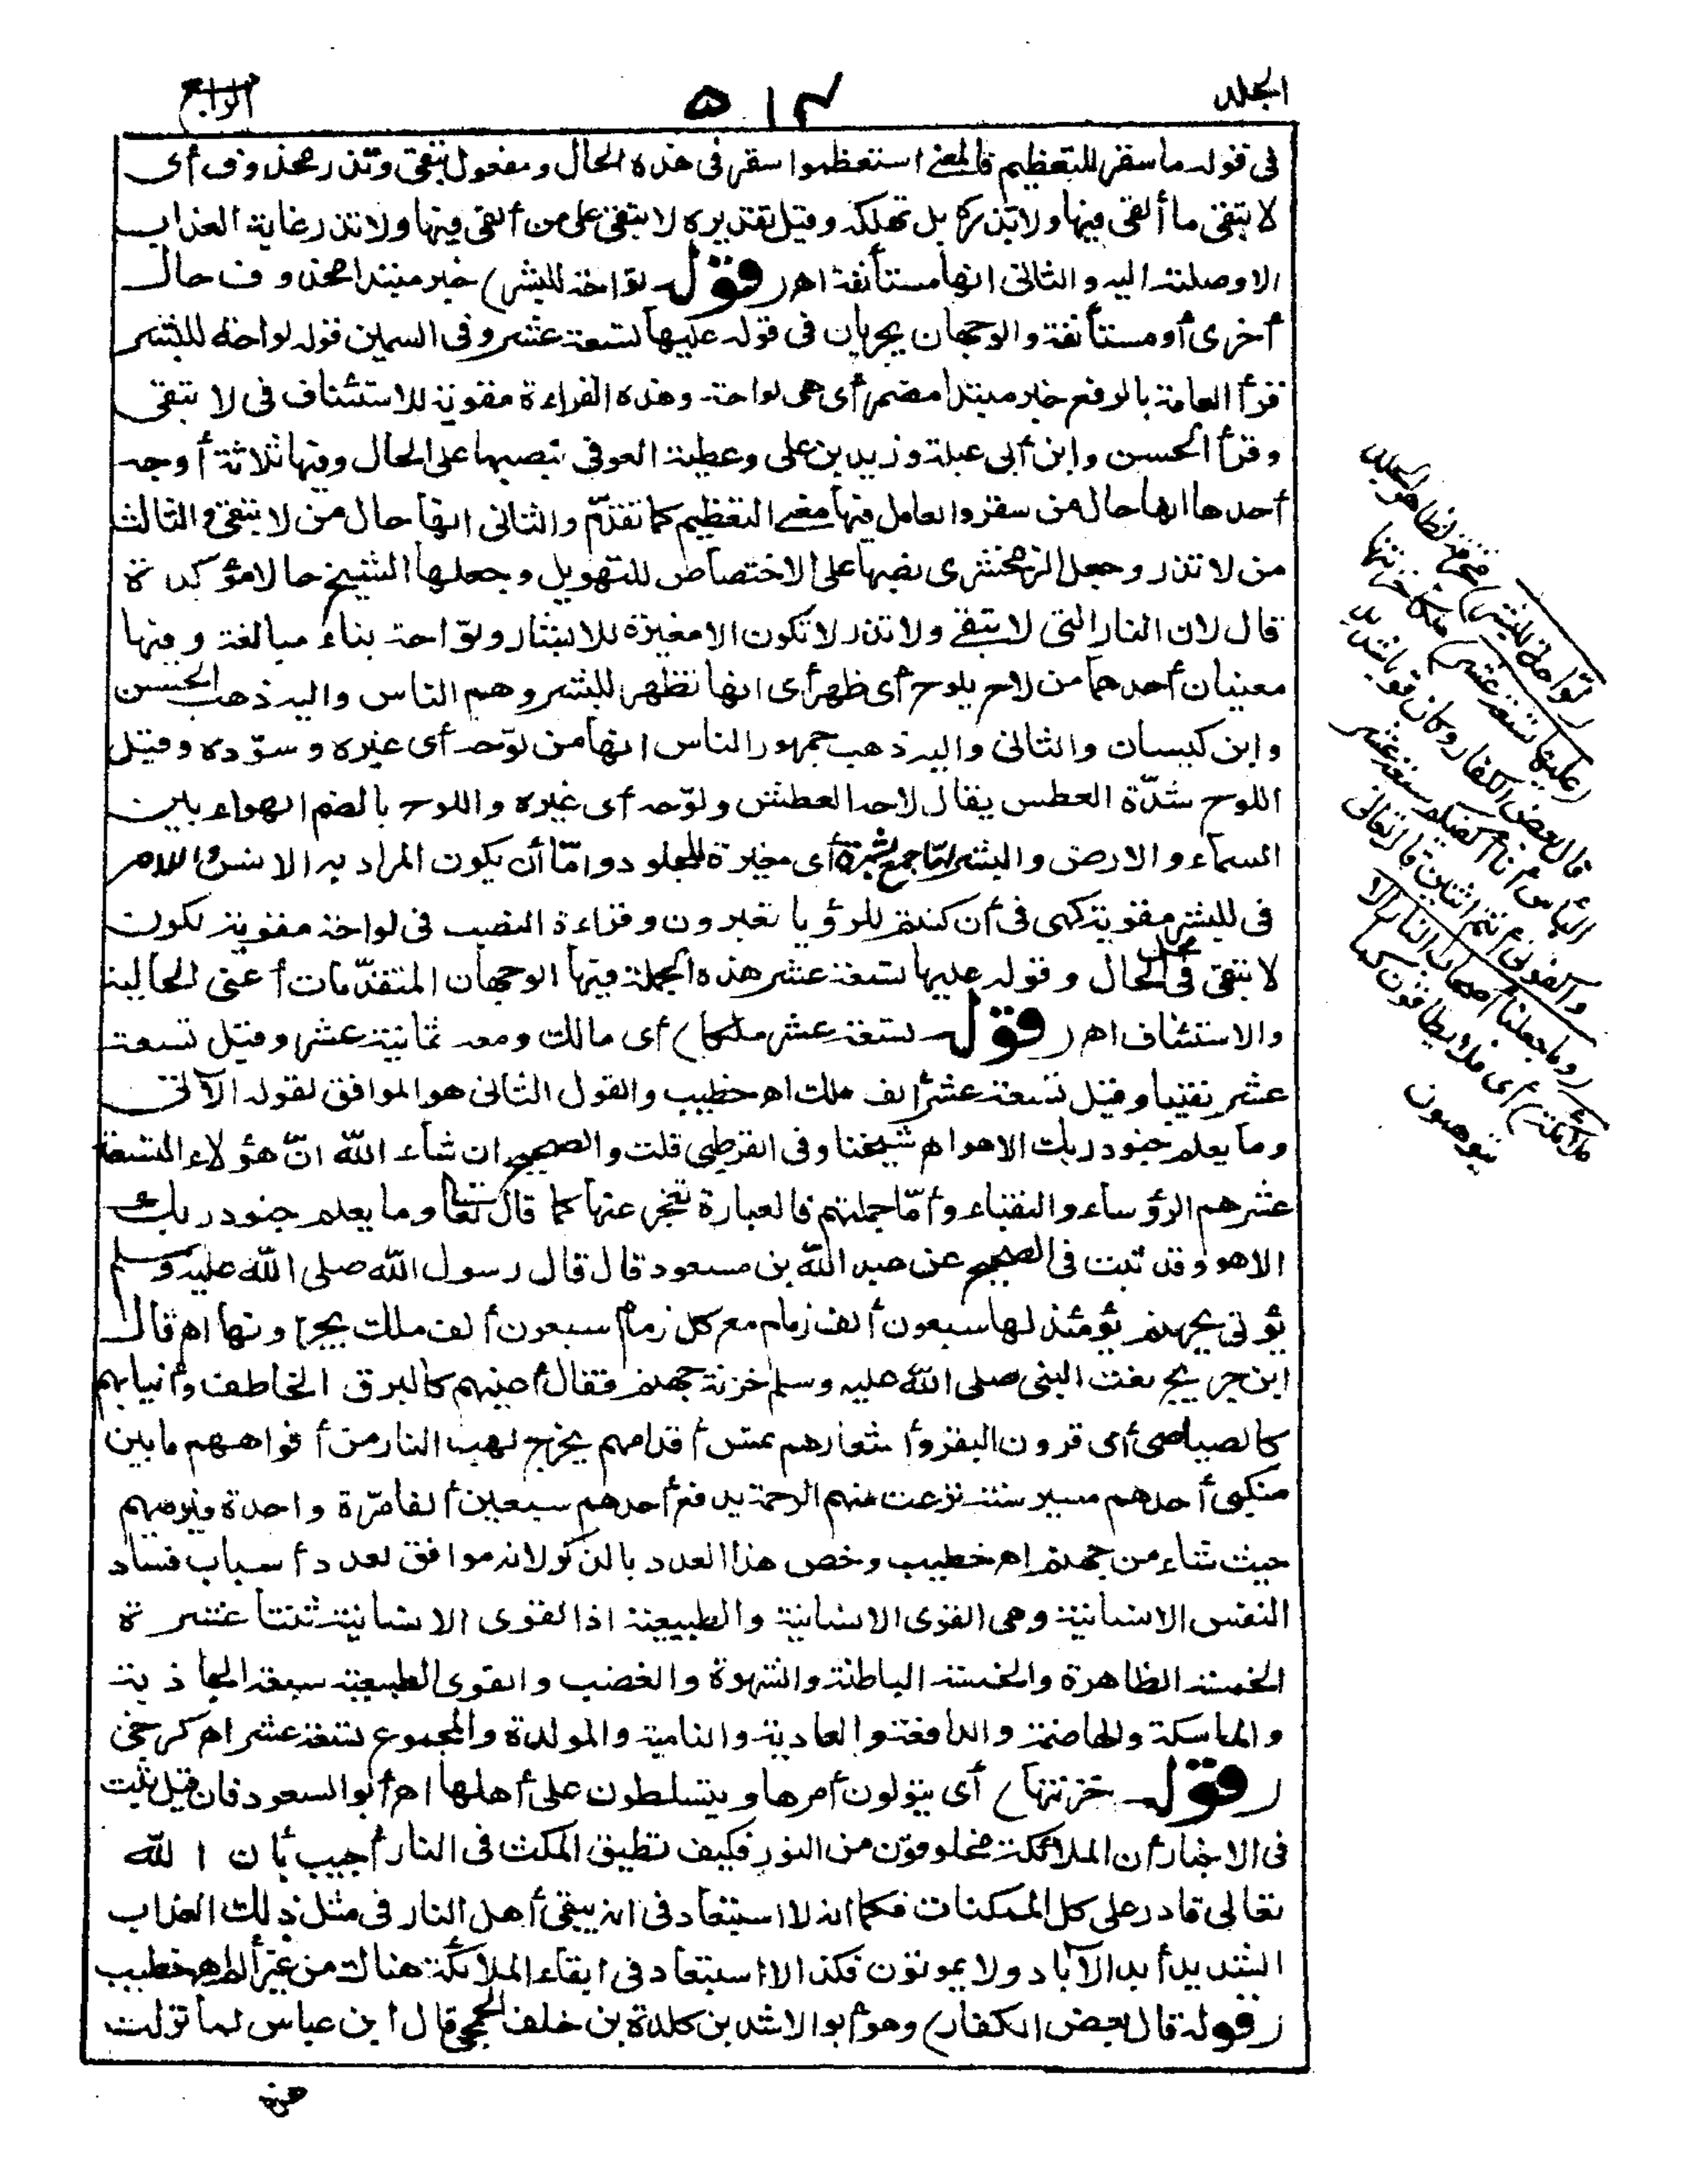 الجلد ٥١٢ الرابع
فى قوله ما سقر للتعظيم فالمعنى استعظموا سقر فى هذه الحال ومفعول تبقى وتذر محذوف أى
لا تبقى ما ألقى فيها ولا تذركه بل تهلكه وقيل تقديره لا تبقى على من ألقى فيها ولا تذر غاية العذاب
الا وصلته اليه والثانى انها مستأنفة اهـ (قوله لواحة للبشر) خبر مبتدا محذوف حال
أخرى أو مستأنفة والوجهان يجريان فى قوله عليها تسعة عشر وفى السمين قوله لواحة للبشر
قرأ العامة بالرفع خبر مبتدا مضمر أى هى لواحة وهذه القراءة مقوية للاستئناف فى لا تبقى
وقرأ الحسن وابن أبى عبلة وزيد بن على وعطية العوفى بنصبها على الحال وفيها ثلاثة أوجه
أحدها انها حال من سقر والعامل فيها معنى التعظيم كما تقدّم والثانى انها حال من لا تبقى والثالث
من لا تذر وجعل الزمخشرى نصبها على الاختصاص للتهويل وجعلها الشيخ حالا مؤكدة
قال لان النار التى لا تبقى ولا تذر لا تكون الا مغيرة للابشار ولوّاحة بناء مبالغة وفيها
معنيان أحدهما من لاح يلوح أى ظهر أى انها تظهر للبشر وهم الناس واليه ذهب الحسن
وابن كيسان والثانى واليه ذهب جمهور الناس انها من لوّحه أى غيره وسوّده وقيل
اللوح شدّة العطش يقال لاحه العطش ولوّحه أى غيره واللوح بالضم الهواء بين
السماء والارض والبشر امّا جمع بشرة أى مغيرة للجلود وامّا أن يكون المراد به الانس واللام
فى للبشر مقوية كهى فى أن كنتم للرؤيا تعبرون وقراءة النصب فى لواحة مقوية لكون
لا تبقى فى محل الحال وقوله عليها تسعة عشر هذه الجملة فيها الوجهان المتقدّمان أعنى الحالية
والاستئناف اهـ (قوله تسعة عشر ملكا) أى مالك ومعه ثمانية عشر وقيل تسعة
عشر نقيبا وقيل تسعة عشر ألف ملك اهـ خطيب والقول الثانى هو الموافق لقوله الآتى
وما يعلم جنود ربك الا هو اهـ شيخنا وفى القرطبى قلت والصحيح ان شاء الله انّ هؤلاء التسعة
عشر هم الرؤساء والنقباء وأمّا جملتهم فالعبارة تعجز عنها كما قال تعالى وما يعلم جنود ربك
الا هو وقد ثبت فى الصحيح عن عبد الله بن مسعود قال قال رسول الله صلى الله عليه وسلم
يؤتى بجهنم يؤمئذ لها سبعون ألف زمام مع كل زمام سبعون ألف ملك يجرّونها اهـ قال
ابن جريج نعت النبى صلى الله عليه وسلم خزنة جهنم فقال أعينهم كالبرق الخاطف وأنيابهم
كالصياصى أى قرون البقر وأشعارهم تمس أقدامهم يخرج لهب النار من أفواههم ما بين
منكبى أحدهم مسيرة سنة نزعت منهم الرحمة يدفع أحدهم سبعين ألفا مرّة واحدة فيرميهم
حيث شاء من جهنم اهـ خطيب وخص هذا العدد بالذكر لانه موافق لعدد أسباب فساد
النفس الانسانية وهى القوى الانسانية والطبيعية اذ القوى الانسانية ثنتا عشرة
الخمسة الظاهرة والخمسة الباطنة والشهوة والغضب والقوى الطبيعية سبعة الجاذبة
والماسكة والهاضمة والدافعة والعادية والنامية والمولدة والمجموع تسعة عشر اهـ كرخى
(قوله خزنتها) أى يتولون أمرها ويتسلطون على أهلها اهـ أبو السعود فان قيل ثبت
فى الاخبار أن الملائكة مخلوقون من النور فكيف تطيق المكث فى النار أجيب بأن الله
تعالى قادر على كل الممكنات فكما انه لا استبعاد فى انه يبقى أهل النار فى مثل ذلك العذاب
الشديد أبد الآباد ولا يموتون فكذا لا استبعاد فى ابقاء الملائكة هناك من غير ألم اهـ خطيب
(قوله قال بعض الكفار) وهو أبو الاشد بن كلدة بن خلف الجمحى قال ابن عباس لما نزلت
هذه
(لواحة للبشر) محرقة لظاهر الجلد
(عليها تسعة عشر) ملكا خزنتها
قال بعض الكفار وكان قويا شديد
البأس أنا أكفيكم سبعة عشر
واكفونى أنتم اثنين قال تعالى
(وما جعلنا أصحاب النار الا
ملائكة) أى فلا يطاقون كما
يتوهمون